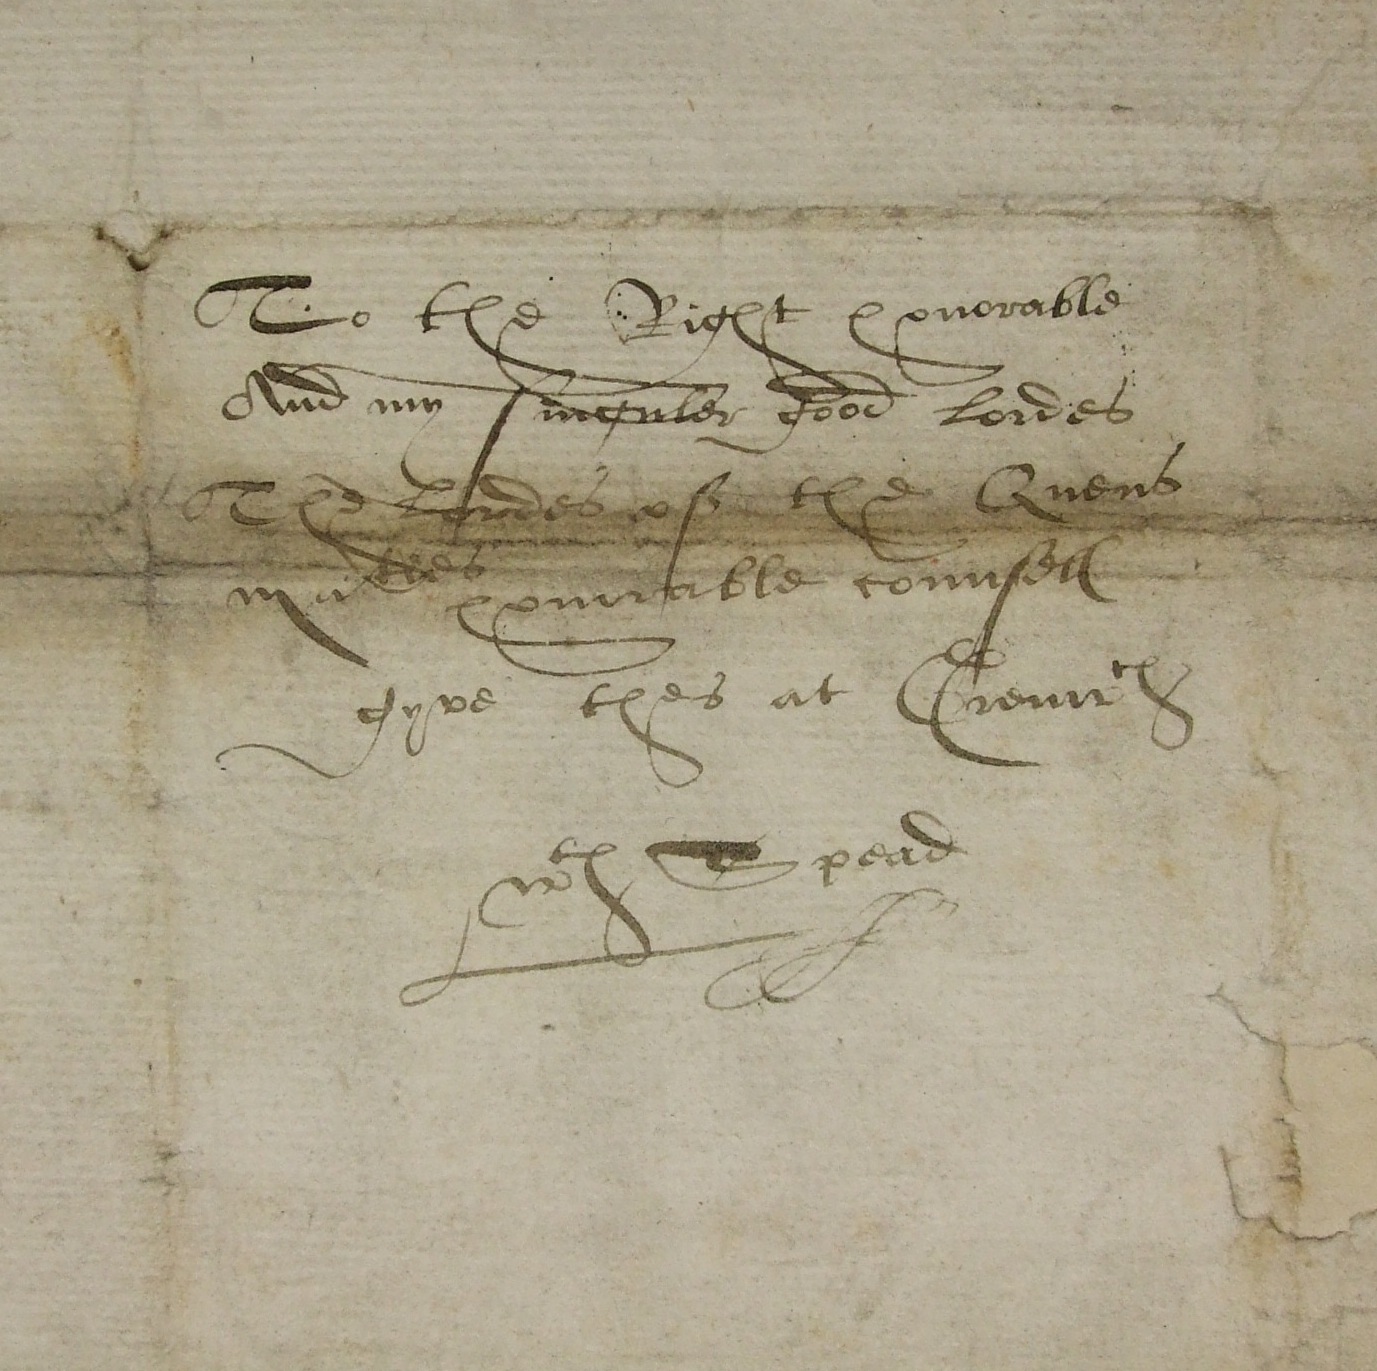 To the Right honorable
And my singuler good lordes
The lordes of the Quens
ma^ties honorable counsell
gyve thes at Grenw^ch
w^th Spead